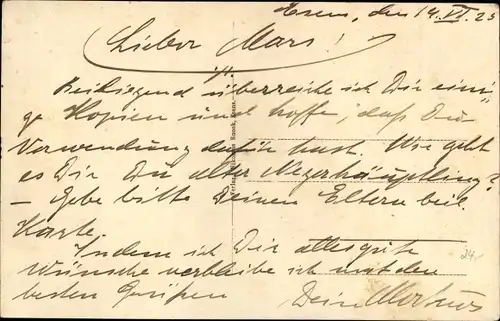 den 14. VI. 23
Lieber Mars!
Beiliegend überreiche ich Dir eini-
ge Kopien und hoffe, daß Du
Verwendung dafür hast. Wie geht
es Dir Du alter Negerhäuptling?
– Gebe bitte Deinen Eltern beil.
Karte.
Indem ich Dir alles gute
wünsche verbleibe ich mit den
besten Grüßen
Dein
24.-
Verlag